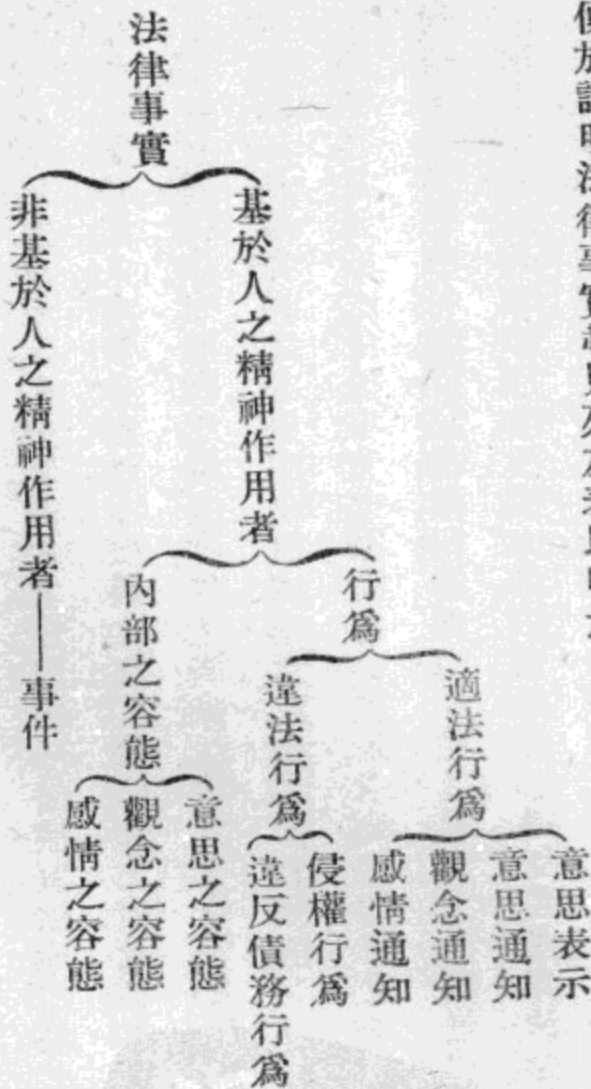 法律事實
基於人之精神作用者
行爲
適法行爲
意思表示
意思通知
觀念通知
感情通知
違法行爲
侵權行爲
違反債務行爲
內部之容態
意思之容態
觀念之容態
感情之容態
非基於人之精神作用者——事件